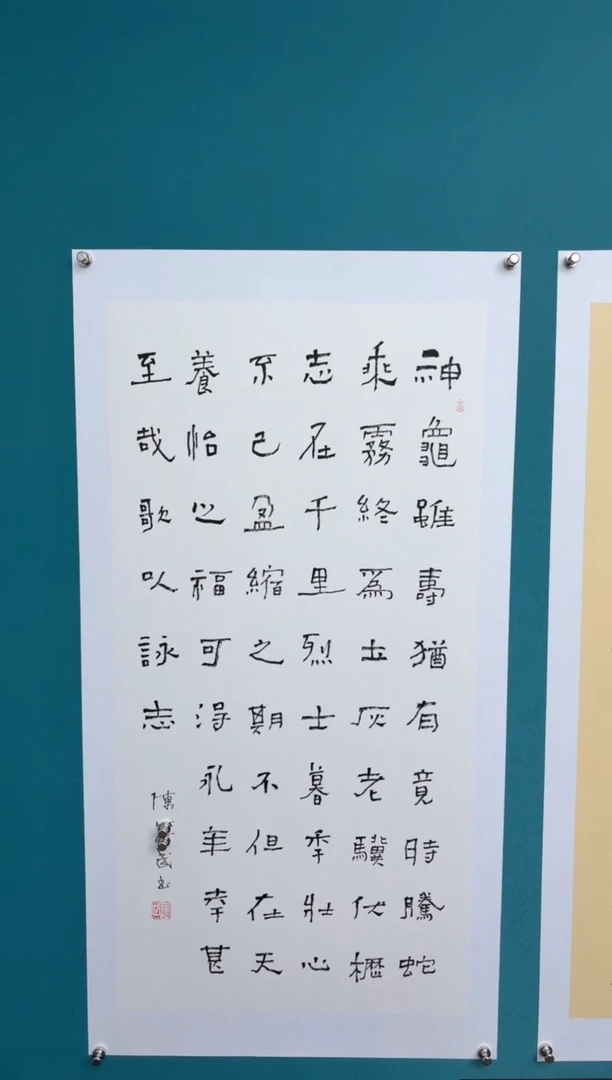 神龜雖壽猶有竟時騰蛇
乘霧終爲土灰老驥伏櫪
志在千里烈士暮年壯心
不已盈縮之期不但在天
養怡之福可得永年幸甚
至哉歌以詠志